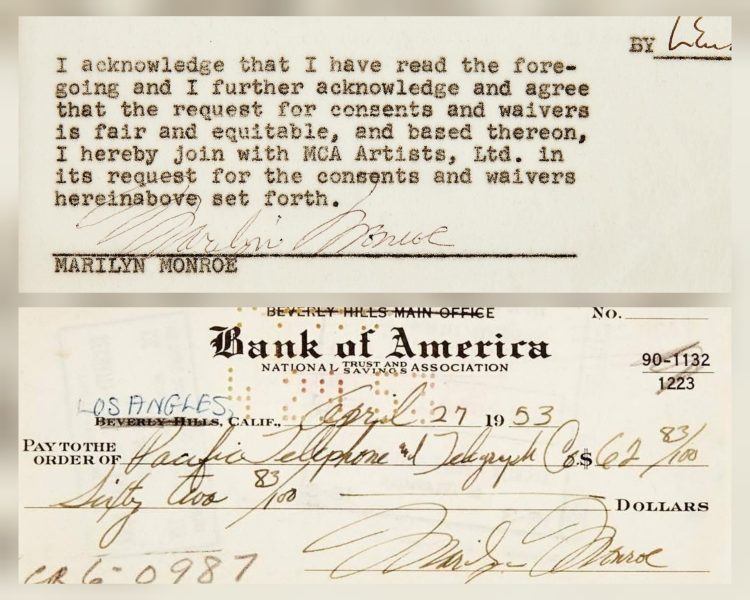 BY
I acknowledge that I have read the fore-
going and I further acknowledge and agree
that the request for consents and waivers
is fair and equitable, and based thereon,
I hereby join with MCA Artists, Ltd. in
its request for the consents and waivers
hereinabove set forth.
Marilyn Monroe
MARILYN MONROE
BEVERLY HILLS MAIN OFFICE No.
Bank of America
NATIONAL TRUST AND SAVINGS ASSOCIATION
90-1132
1223
LOS ANGLES,
BEVERLY HILLS, CALIF., April 27 1953
PAY TO THE
ORDER OF Pacific Telephone and Telegraph Co. $ 62 83/100
Sixty two 83/100 DOLLARS
Marilyn Monroe
CR 6-0987